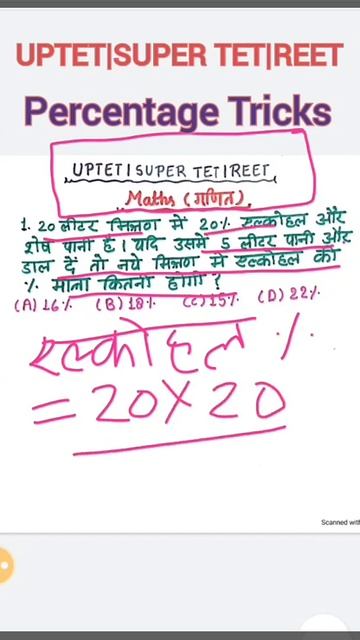 UPTET|SUPER TET|REET
Percentage Tricks
UPTET|SUPER TET|REET
Maths (गणित)
1. 20 लीटर मिश्रण में 20% एल्कोहल और
शेष पानी है। यदि उसमें 5 लीटर पानी और
डाल दें तो नये मिश्रण में एल्कोहल की
% माना कितनी होगी?
(A) 16% (B) 18% (C) 15% (D) 22%
एल्कोहल %
= 20 X 20
Scanned with